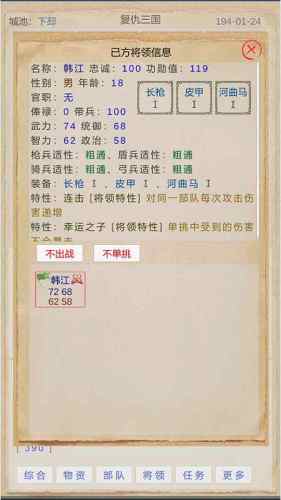 城池: 下邳
复仇三国
194-01-24
己方将领信息
名称: 韩江 忠诚: 100 功勋值: 119
性别: 男 年龄: 18
官职: 无
俸禄: 0 带兵: 100
武力: 74 统御: 68
智力: 62 政治: 58
长枪 I
皮甲 I
河曲马 I
枪兵适性: 粗通、盾兵适性: 粗通
骑兵适性: 粗通、弓兵适性: 粗通
装备: 长枪 I 、皮甲 I 、河曲马 I
特性: 连击 [将领特性] 对同一部队每次攻击伤
害递增
特性: 幸运之子 [将领特性] 单挑中受到的伤害
不会暴击
不出战
不单挑
韩江
72 68
62 58
[ 390 ]
综合
物资
部队
将领
任务
更多